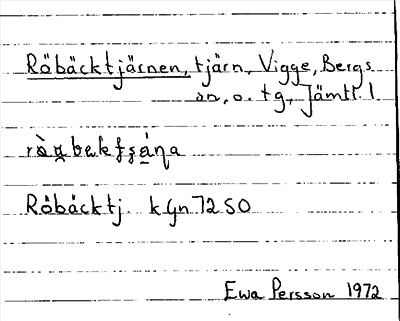 Röbäcktjärnen, tjärn, Vigge, Bergs
sn, o. tg, Jämtl. l.
Röbäcktj. kgn 72 SO
Ewa Persson 1972